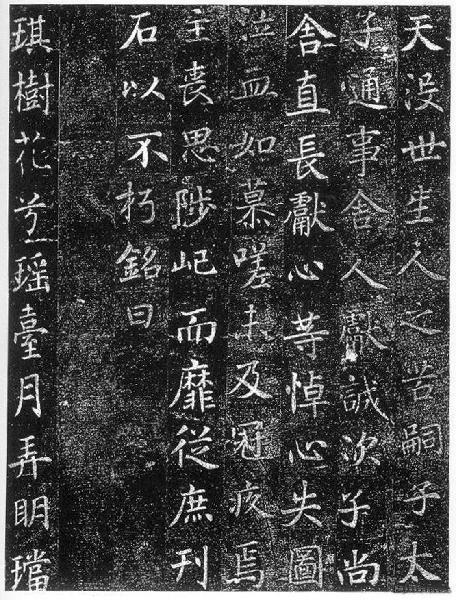 天沒世生人之苦嗣子太
子通事舍人獻誠次子尚
舍直長獻心等悼心失圖
泣血如慕嗟未及冠疚焉
主喪思陟屺而靡從庶刊
石以不朽銘曰
琪樹花兮瑤臺月弄明璫